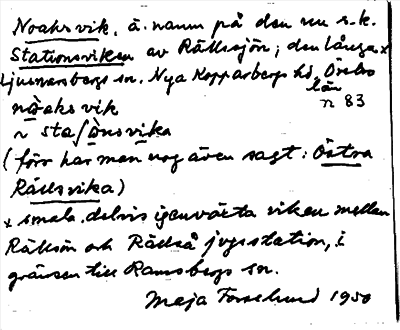 Noaksvik, ä. namn på den nu s.k.
Stationsviken av Rällssjön; den långa x
Ljusnarsbergs sn. Nya Kopparbergs hd. Örebro
län
nɷ̀aks vik n 83
~ staʃɷ̀nsvika
(förr har man nog även sagt: Östra
Rällsvika)
x smala delvis igenväxta viken mellan
Rällsön och Rällså jvgsstation, i
gränsen till Ramsbergs sn.
Maja Forsslund 1950